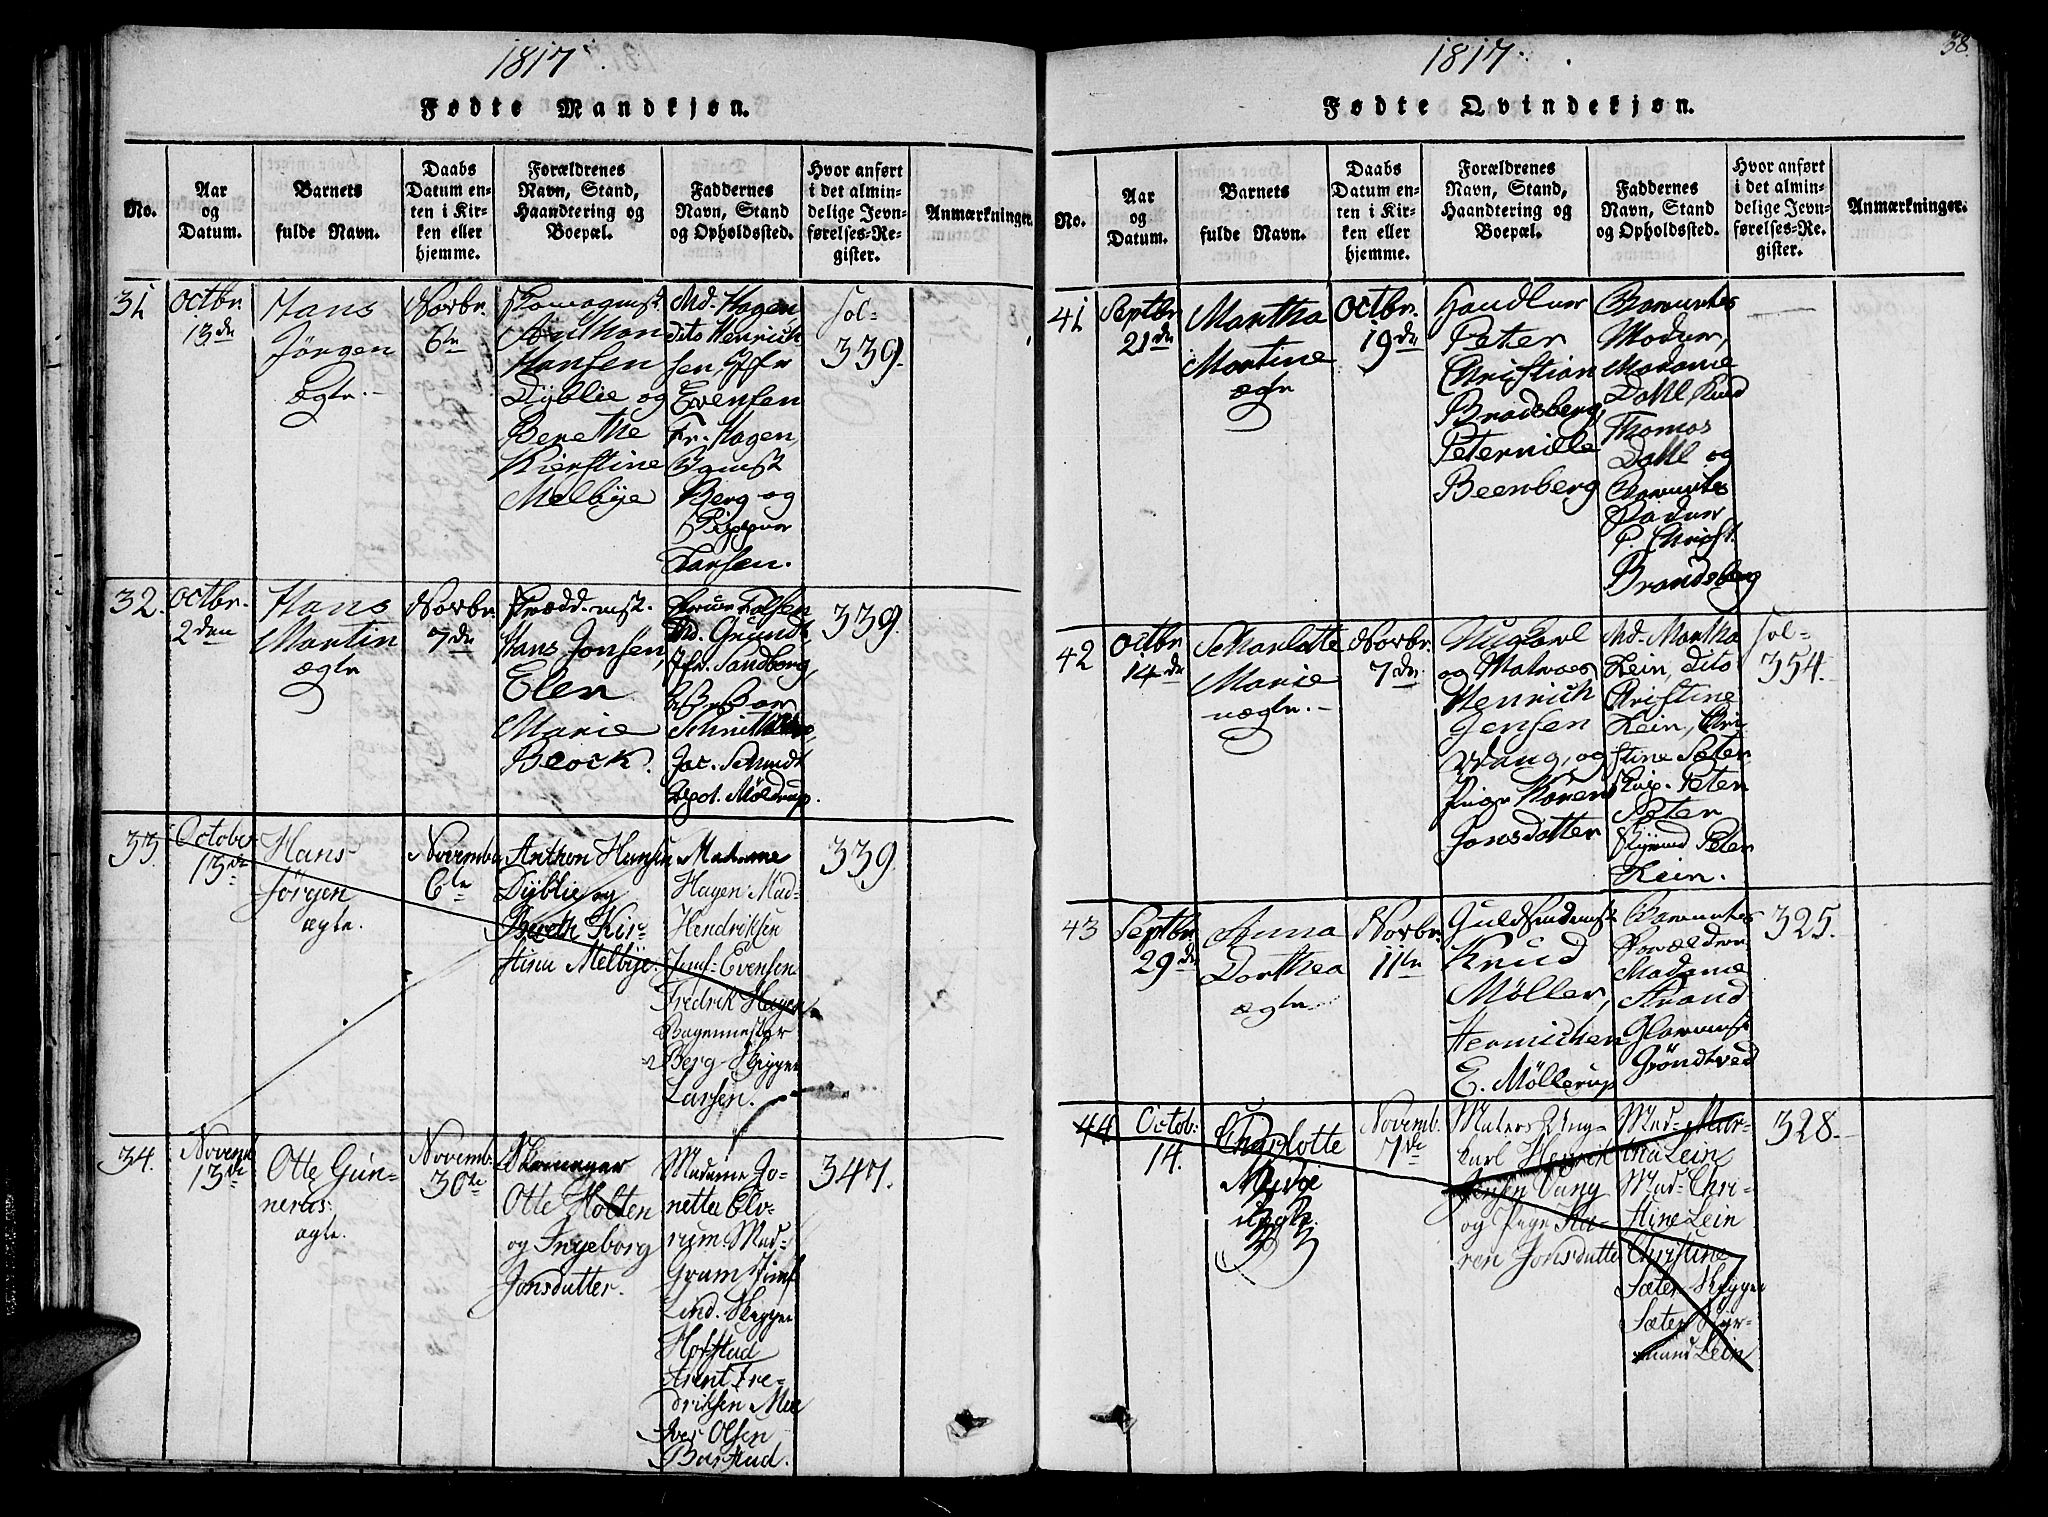 1817.
Fødte Mandkjøn.
No.
Aar
og
Datum.
Barnets
fulde Navn.
Daabs
Datum en-
ten i Kir-
ken eller
hjemme.
Forældrenes
Navn, Stand,
Haandtering og
Boepæl.
Faddernes
Navn, Stand
og Opholdssted.
Hvor anført
i det almin-
delige Jevn-
førelses-Re-
gister.
Anmærkninger.
31
Octbr.
13de
Hans
Jörgen
ægte.
Novbr.
6te
Anthon
Hansen
Dÿblie og
Berethe
Kierstine
Melbÿe
Md. Hagen
dito Henrich
sen, Jfr
Evensen
Fr. Hagen
Bgmst
Berg og
Skipper
Larsen.
Fol-
339.
32.
Octbr.
2den
Hans
Martin
ægte
Novbr.
7de
Hans Jonsen,
Elen
Marie
Block.
Md. Grundt
Jfr. Sandborg,
Jac. Schmidt
Möldrup.
339.
33.
October
13de
Hans
Jörgen
ægte.
Novemb.
6te
Anthon Hansen
Dÿblie og
Bereth Kir-
stine Melbÿe.
Madame
Hagen Mad-
Hendriksen
Jomf- Evensen
Fredrik Hagen
Bagermester
Berg- Skipper
Larsen.
339.
34.
Novemb.
13de
Otte Gun-
nerus
ægte.
Novemb.
30te
Skomager
Otte Holten
og Ingeborg
Jonsdatter.
Madame Jo-
netta Elv-
rum- Mad-
Gram Jomf
Lind. Skipper
Hofstad
Arent Fre-
driksen Mee
Iver Olsen
Barstad.
347.
1817.
38.
Fødte Qvindekjøn.
No.
Aar
og
Datum.
Barnets
fulde Navn.
Daabs
Datum en-
ten i Kir-
ken eller
hjemme.
Forældrenes
Navn, Stand,
Haandtering og
Boepæl.
Faddernes
Navn, Stand
og Opholdssted.
Hvor anført
i det almin-
delige Jevn-
førelses-Re-
gister.
Anmærkninger.
41
Septbr.
21de
Martha
Martine
ægte
Octbr.
19de
Handler
Peter
Christian
Brodsberg,
Peternille
Beenberg
Barnets
Moder,
Madame
Dahl Knud
Thomas
Dahl og
Barnets
Fader
P. Christ.
Brandsberg
42
Octbr.
14de
Scharlotte
Marie
uægte.
Novbr.
7de
Ungkarl
og Matroes
Henrich
Jensen
Vang, og
Pige Karen
Jonsdatter
Md- Martha
Lein, dito
Christine
Lein, Chri
stine Sæter
Skip. Peter
Sæter
Styrmd Peter
Lein.
Fol-
354.
43
Septbr.
29de
Anna
Dorthea
ægte.
Novbr.
11te
Guldsmedmst
Knud
Möller,
Hermichen
E. Möllerup
Barnets
Forældre
Madame
Strand
Glarmst
Gröndtved
325.
44
Octob:
14.
Charlotte
Marie
uægte.
Novemb.
7de
Matros Ung-
karl Henrik
Jensen Vang
og Pige Ka-
ren Jonsdatter
Mad- Mar-
tha Lein
Mad- Chri-
stine Lein
Christine
Sæter Skipper
Sæter Styr-
mand Lein
328.